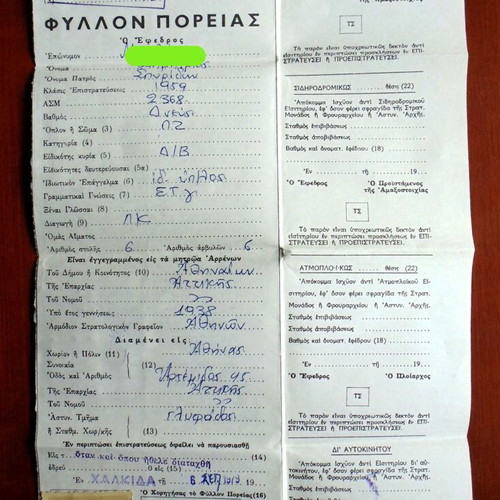 ΦΥΛΛΟΝ ΠΟΡΕΙΑΣ
Ὁ Ἔφεδρος
Ἐπώνυμον
Ὄνομα
Ὄνομα Πατρὸς Σπυρίδων
Κλάσις Ἐπιστρατεύσεως 1959
ΑΣΜ 2368
Βαθμὸς
Ὅπλον ἢ Σῶμα (3) ΠΖ
Κατηγορία (4)
Εἰδικότης κυρία (5) Δ/Β
Εἰδικότης δευτερεύουσαι (5α)
Ἰδιωτικὸν Ἐπάγγελμα (6) ἰδ. ὑπ/λος
Γραμματικαὶ Γνώσεις (7) Ε.Τ.γ.
Ξέναι Γλῶσσαι (8)
Διαγωγὴ (9) ΛΚ
Ὁμὰς Αἵματος
Ἀριθμὸς στολῆς 6 Ἀριθμὸς ἀρβυλῶν 6
Εἶναι ἐγγεγραμμένος εἰς τὰ μητρῶα Ἀρρένων
Τοῦ Δήμου ἢ Κοινότητος (10) Ἀθηναίων
Τῆς Ἐπαρχίας Ἀττικῆς
Τοῦ Νομοῦ 〃
Ὑπὸ ἔτος γεννήσεως 1938
Ἁρμόδιον Στρατολογικὸν Γραφεῖον Ἀθηνῶν
Διαμένει εἰς
Χωρίον ἢ Πόλιν (11) Ἀθήνας
Συνοικία (12)
Ὁδὸς καὶ Ἀριθμὸς Ἀρτέμιδος 45
Τῆς Ἐπαρχίας Ἀττικῆς
Τοῦ Νομοῦ 〃
Ἀστυν. Τμῆμα Γλυφάδας
ἢ Σταθμ. Χωρ/κῆς (13)
Ἐν περιπτώσει ἐπιστρατεύσεως ὀφείλει νὰ παρουσιασθῇ
Εἰς τ. ὅταν καὶ ὅπου ἤθελε διαταχθῆ (14)
ἑδρεῦ Ο εἰς (15)
Ἐν ΧΑΛΚΙΔΑ τῇ 6 ΣΕΠ 1979
Ὁ Χορηγήσας τὸ Φύλλον Πορείας (16)
τῆς Ἀστυν. Ἀρχῆς
ΤΣ
Τὸ παρὸν εἶναι ὑποχρεωτικῶς δεκτὸν ἀντὶ
εἰσιτηρίου ἐν περιπτώσει προσκλήσεως ἐν ΕΠΙ-
ΣΤΡΑΤΕΥΣΕΙ ἢ ΠΡΟΕΠΙΣΤΡΑΤΕΥΣΕΙ
ΣΙΔΗΡΟΔΡΟΜΙΚΩΣ θέση (22)
"Ἀπόκομμα Ἰσχῦον ἀντὶ Σιδηροδρομικοῦ
Εἰσιτηρίου, ἐφ' ὅσον φέρει σφραγῖδα τῆς Στρατ.
Μονάδος ἢ Φρουραρχείου ἢ Ἀστυν. Ἀρχῆς.
Σταθμὸς ἐπιβιβάσεως
Σταθμὸς ἀποβιβάσεως
Βαθμὸς καὶ ὀνοματ. ἐφέδρου (18)
Ἐν τῇ 19...
Ὁ Ἔφεδρος Ὁ Προϊστάμενος
τῆς Ἁμαξοστοιχίας
ΤΣ
Τὸ παρὸν εἶναι ὑποχρεωτικῶς δεκτὸν ἀντὶ εἰ-
σιτηρίου ἐν περιπτώσει προσκλήσεων ἐν ΕΠΙ-
ΣΤΡΑΤΕΥΣΕΙ ἢ ΠΡΟΕΠΙΣΤΡΑΤΕΥΣΕΙ
ΑΤΜΟΠΛΟ·Ι·ΚΩΣ θέσις (22)
"Ἀπόκομμα Ἰσχῦον ἀντὶ Ἀτμοπλοϊκοῦ Εἰσιτη-
ρίου, ἐφ' ὅσον φέρει σφραγῖδα τῆς Στρατ. Μο-
νάδος ἢ Φρουραρχείου ἢ Ἀστυν. Ἀρχῆς.
Σταθμὸς ἐπιβιβάσεως
Σταθμὸς ἀποβιβάσεως
Βαθμὸς καὶ ὀνοματ. ἐφέδρου (18)
Ἐν τῇ 19...
Ὁ Ἔφεδρος Ὁ Πλοίαρχος
ΤΣ
Τὸ παρὸν εἶναι ὑποχρεωτικῶς δεκτὸν ἀντὶ εἰ-
σιτηρίου ἐν περιπτώσει προσκλήσεων ἐν ΕΠΙ-
ΣΤΡΑΤΕΥΣΕΙ ἢ ΠΡΟΕΠΙΣΤΡΑΤΕΥΣΕΙ
ΔΙ' ΑΥΤΟΚΙΝΗΤΟΥ
"Ἀπόκομμα Ἰσχῦον ἀντὶ εἰσιτηρίου δι' αὐ-
τοκινήτου, ἐφ' ὅσον φέρει σφραγῖδα τῆς Στρατ.
Μονάδος ἢ Φρουραρχείου ἢ Ἀστυν. Ἀρχῆς.
Σταθμὸς ἐπιβιβάσεως